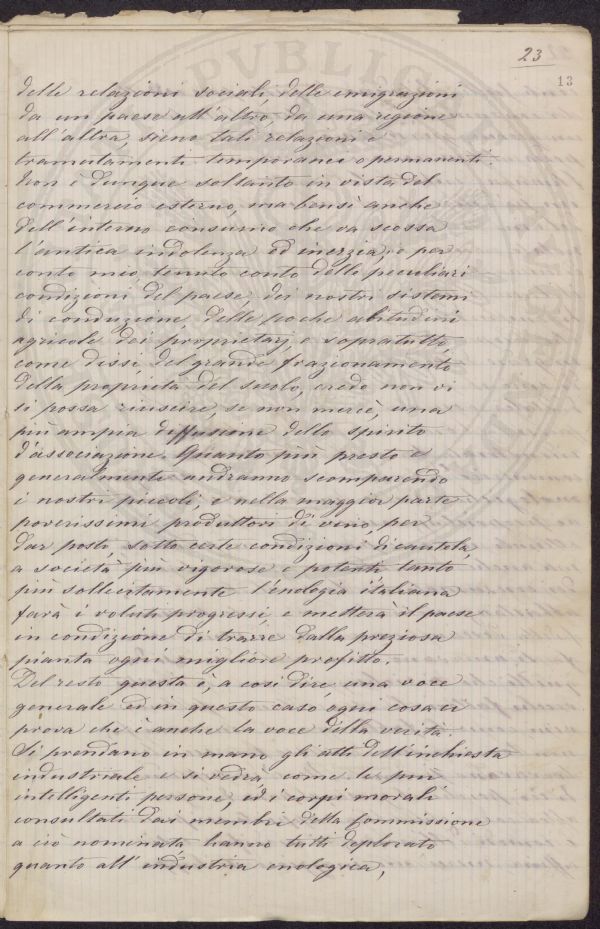 23
13
delle relazioni sociali, delle emigrazioni
da un paese all'altro, da una regione
all'altra, sieno tali relazioni e
tramutamenti temporanei o permanenti.
Non è dunque soltanto in vista del
commercio esterno, ma bensì anche
dell'interno consumo che va scossa
l'antica indolenza ed inerzia, e per
conto mio, tenuto conto delle peculiari
condizioni del paese, dei nostri sistemi
di conduzione, delle poche abitudini
agricole dei proprietarj e sopratutto
come dissi del grande frazionamento
della proprietà del suolo, credo non vi
si possa riuscire, se non mercè, una
più ampia diffusione dello spirito
d'associazione. Quanto più presto e
generalmente andranno scomparendo
i nostri piccoli, e nella maggior parte
poverissimi produttori di vino, per
dar posto, sotto certe condizioni di cautela,
a società più vigorose e potenti, tanto
più sollecitamente l'enologia italiana
farà i voluti progressi, e metterà il paese
in condizione di trarre dalla preziosa
pianta ogni migliore profitto.
Del resto questa è, a così dire, una voce
generale ed in questo caso ogni cosa ci
prova che è anche la voce della verità.
Si prendano in mano gli atti dell'inchiesta
industriale e si vedrà come le più
intelligenti persone, ed i corpi morali
consultati dai membri della Commissione
a ciò nominata, hanno tutti deplorato
quanto all'industria enologica,